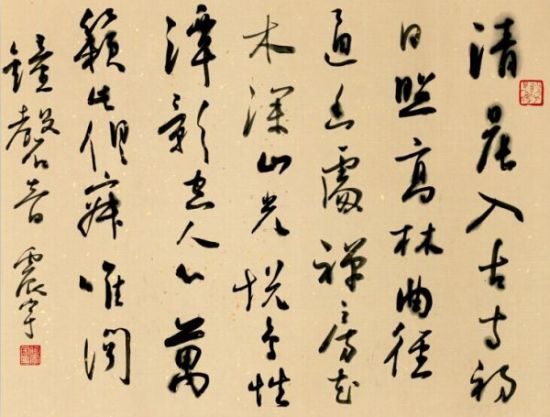 清晨入古寺初
日照高林曲徑
通幽處禪房花
木深山光悦鳥性
潭影空人心萬
籟此俱寂唯聞
鐘磬音 震宇